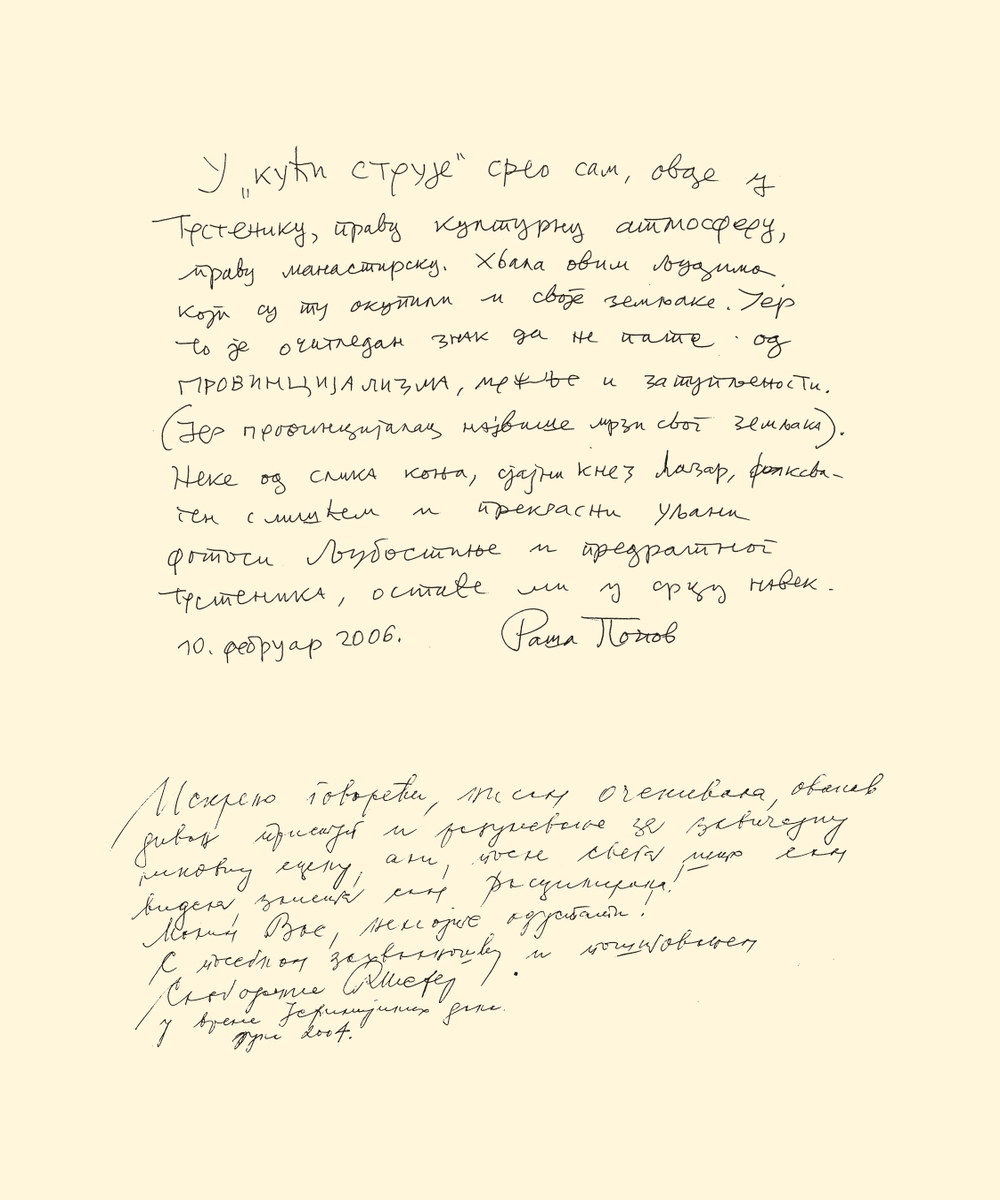 У „кући струје“ срео сам, овде у
Трстенику, праву културну атмосферу,
праву манастирску. Хвала овим људима
који су ту окупили и своје земљаке. Јер
то је очигледан знак да не пате од
ПРОВИНЦИЈАЛИЗМА, мржње и затупљености.
(Јер провинцијалац највише мрзи свог земљака).
Неке од слика коња, сјајни кнез Лазар, фолксва-
ген с и прекрасни уљани
фотоси Љубостиње и предратног
Трстеника, остаће ми у срцу навек.
10. фебруар 2006. Раша Попов
Искрено говорећи, нисам очекивала, овакав
диван приступ и разумевање за завичајну
ликовну сцену, али, после свега што сам
видела заиста сам
Молим Вас, немојте одустати.
С посебном захвалношћу и поштовањем
у време Јефимијиних дана
2004.